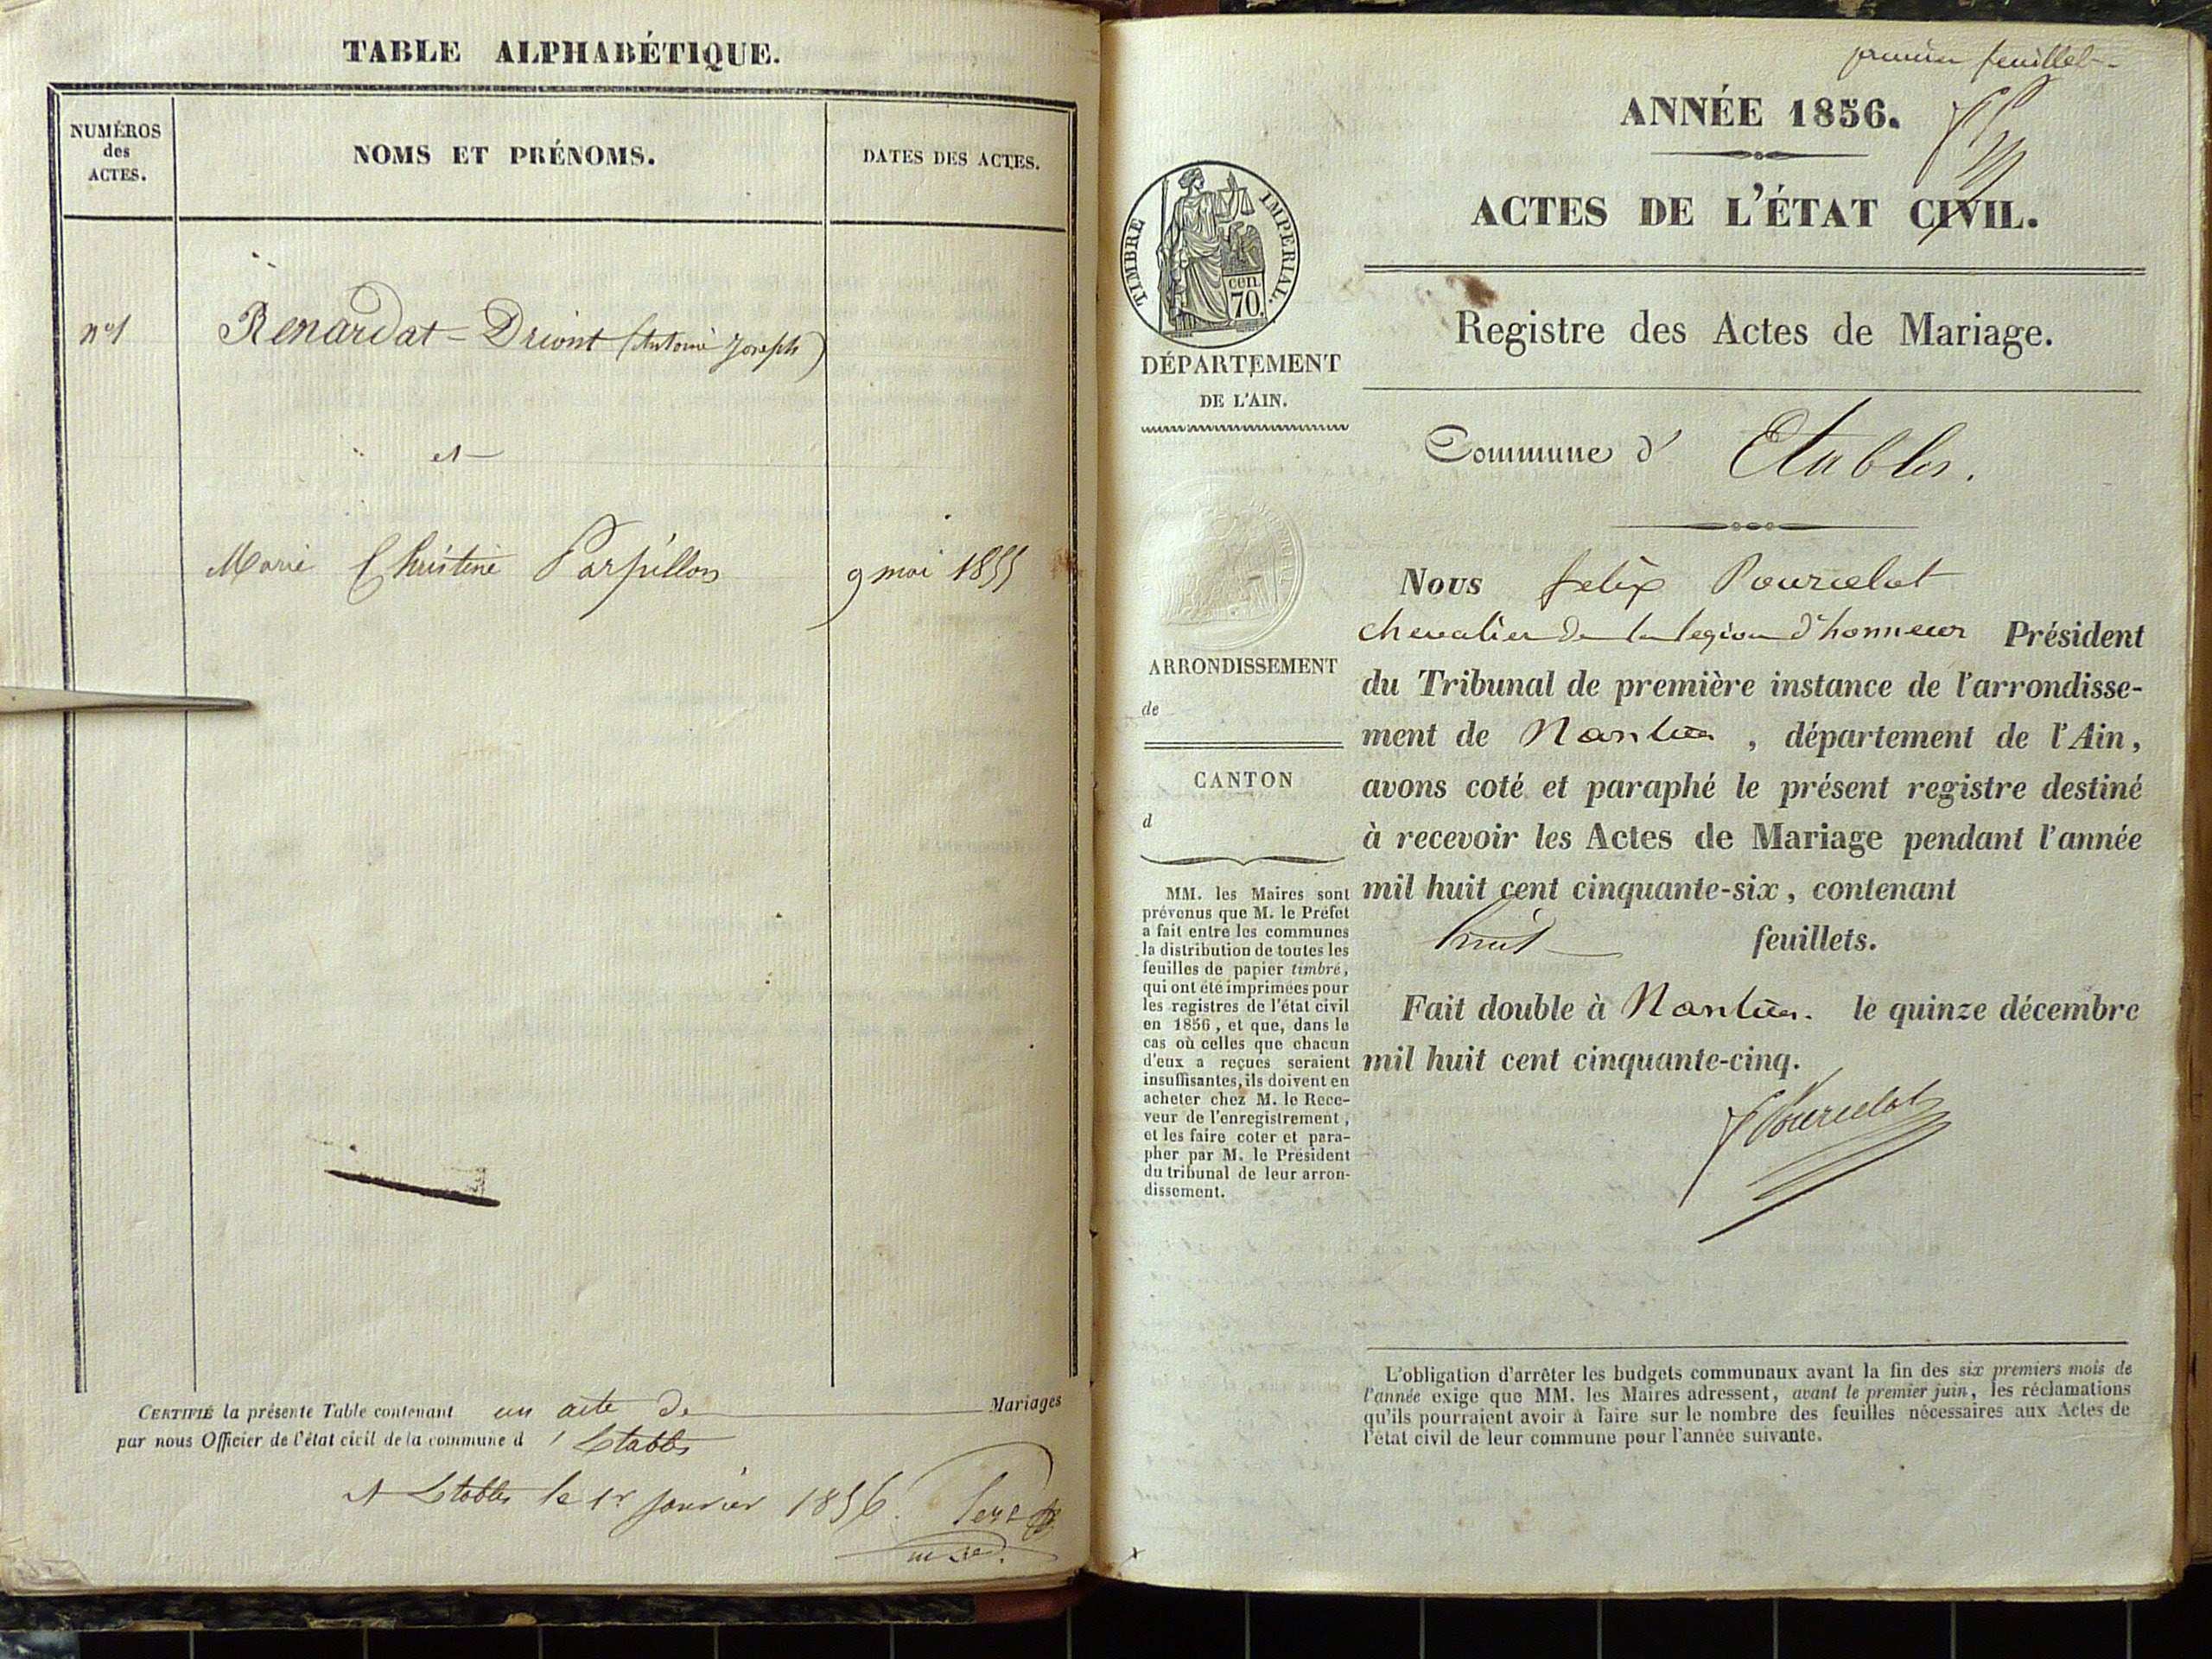 TABLE ALPHABÉTIQUE.
NUMÉROS
des
ACTES.
NOMS ET PRÉNOMS.
DATES DES ACTES.
nº1
Renardat-Driont (Antoine Joseph)
et
Marie Christine Parpillon
9 mai 1855
CERTIFIÉ la présente Table contenant un acte de Mariages
par nous Officier de l'état civil de la commune d'Etables
A Etables le 1r janvier 1856.
premier feuillet
ANNÉE 1856.
ACTES DE L'ÉTAT CIVIL.
TIMBRE IMPERIAL.
CEN.
70.
DÉPARTEMENT
DE L'AIN.
ARRONDISSEMENT
de
CANTON
d
MM. les Maires sont
prévenus que M. le Préfet
a fait entre les communes
la distribution de toutes les
feuilles de papier timbré,
qui ont été imprimées pour
les registres de l'état civil
en 1856, et que, dans le
cas où celles que chacun
d'eux a reçues seraient
insuffisantes, ils doivent en
acheter chez M. le Rece-
veur de l'enregistrement,
et les faire coter et para-
pher par M. le Président
du tribunal de leur arron-
dissement.
Registre des Actes de Mariage.
Commune d' Etables.
Nous felix Pourcelot
chevalier de la legion d'honneur Président
du Tribunal de première instance de l'arrondisse-
ment de Nantua, département de l'Ain,
avons coté et paraphé le présent registre destiné
à recevoir les Actes de Mariage pendant l'année
mil huit cent cinquante-six, contenant
huit feuillets.
Fait double à Nantua. le quinze décembre
mil huit cent cinquante-cinq.
F Pourcelot
L'obligation d'arrêter les budgets communaux avant la fin des six premiers mois de
l'année exige que MM. les Maires adressent, avant le premier juin, les réclamations
qu'ils pourraient avoir à faire sur le nombre des feuilles nécessaires aux Actes de
l'état civil de leur commune pour l'année suivante.